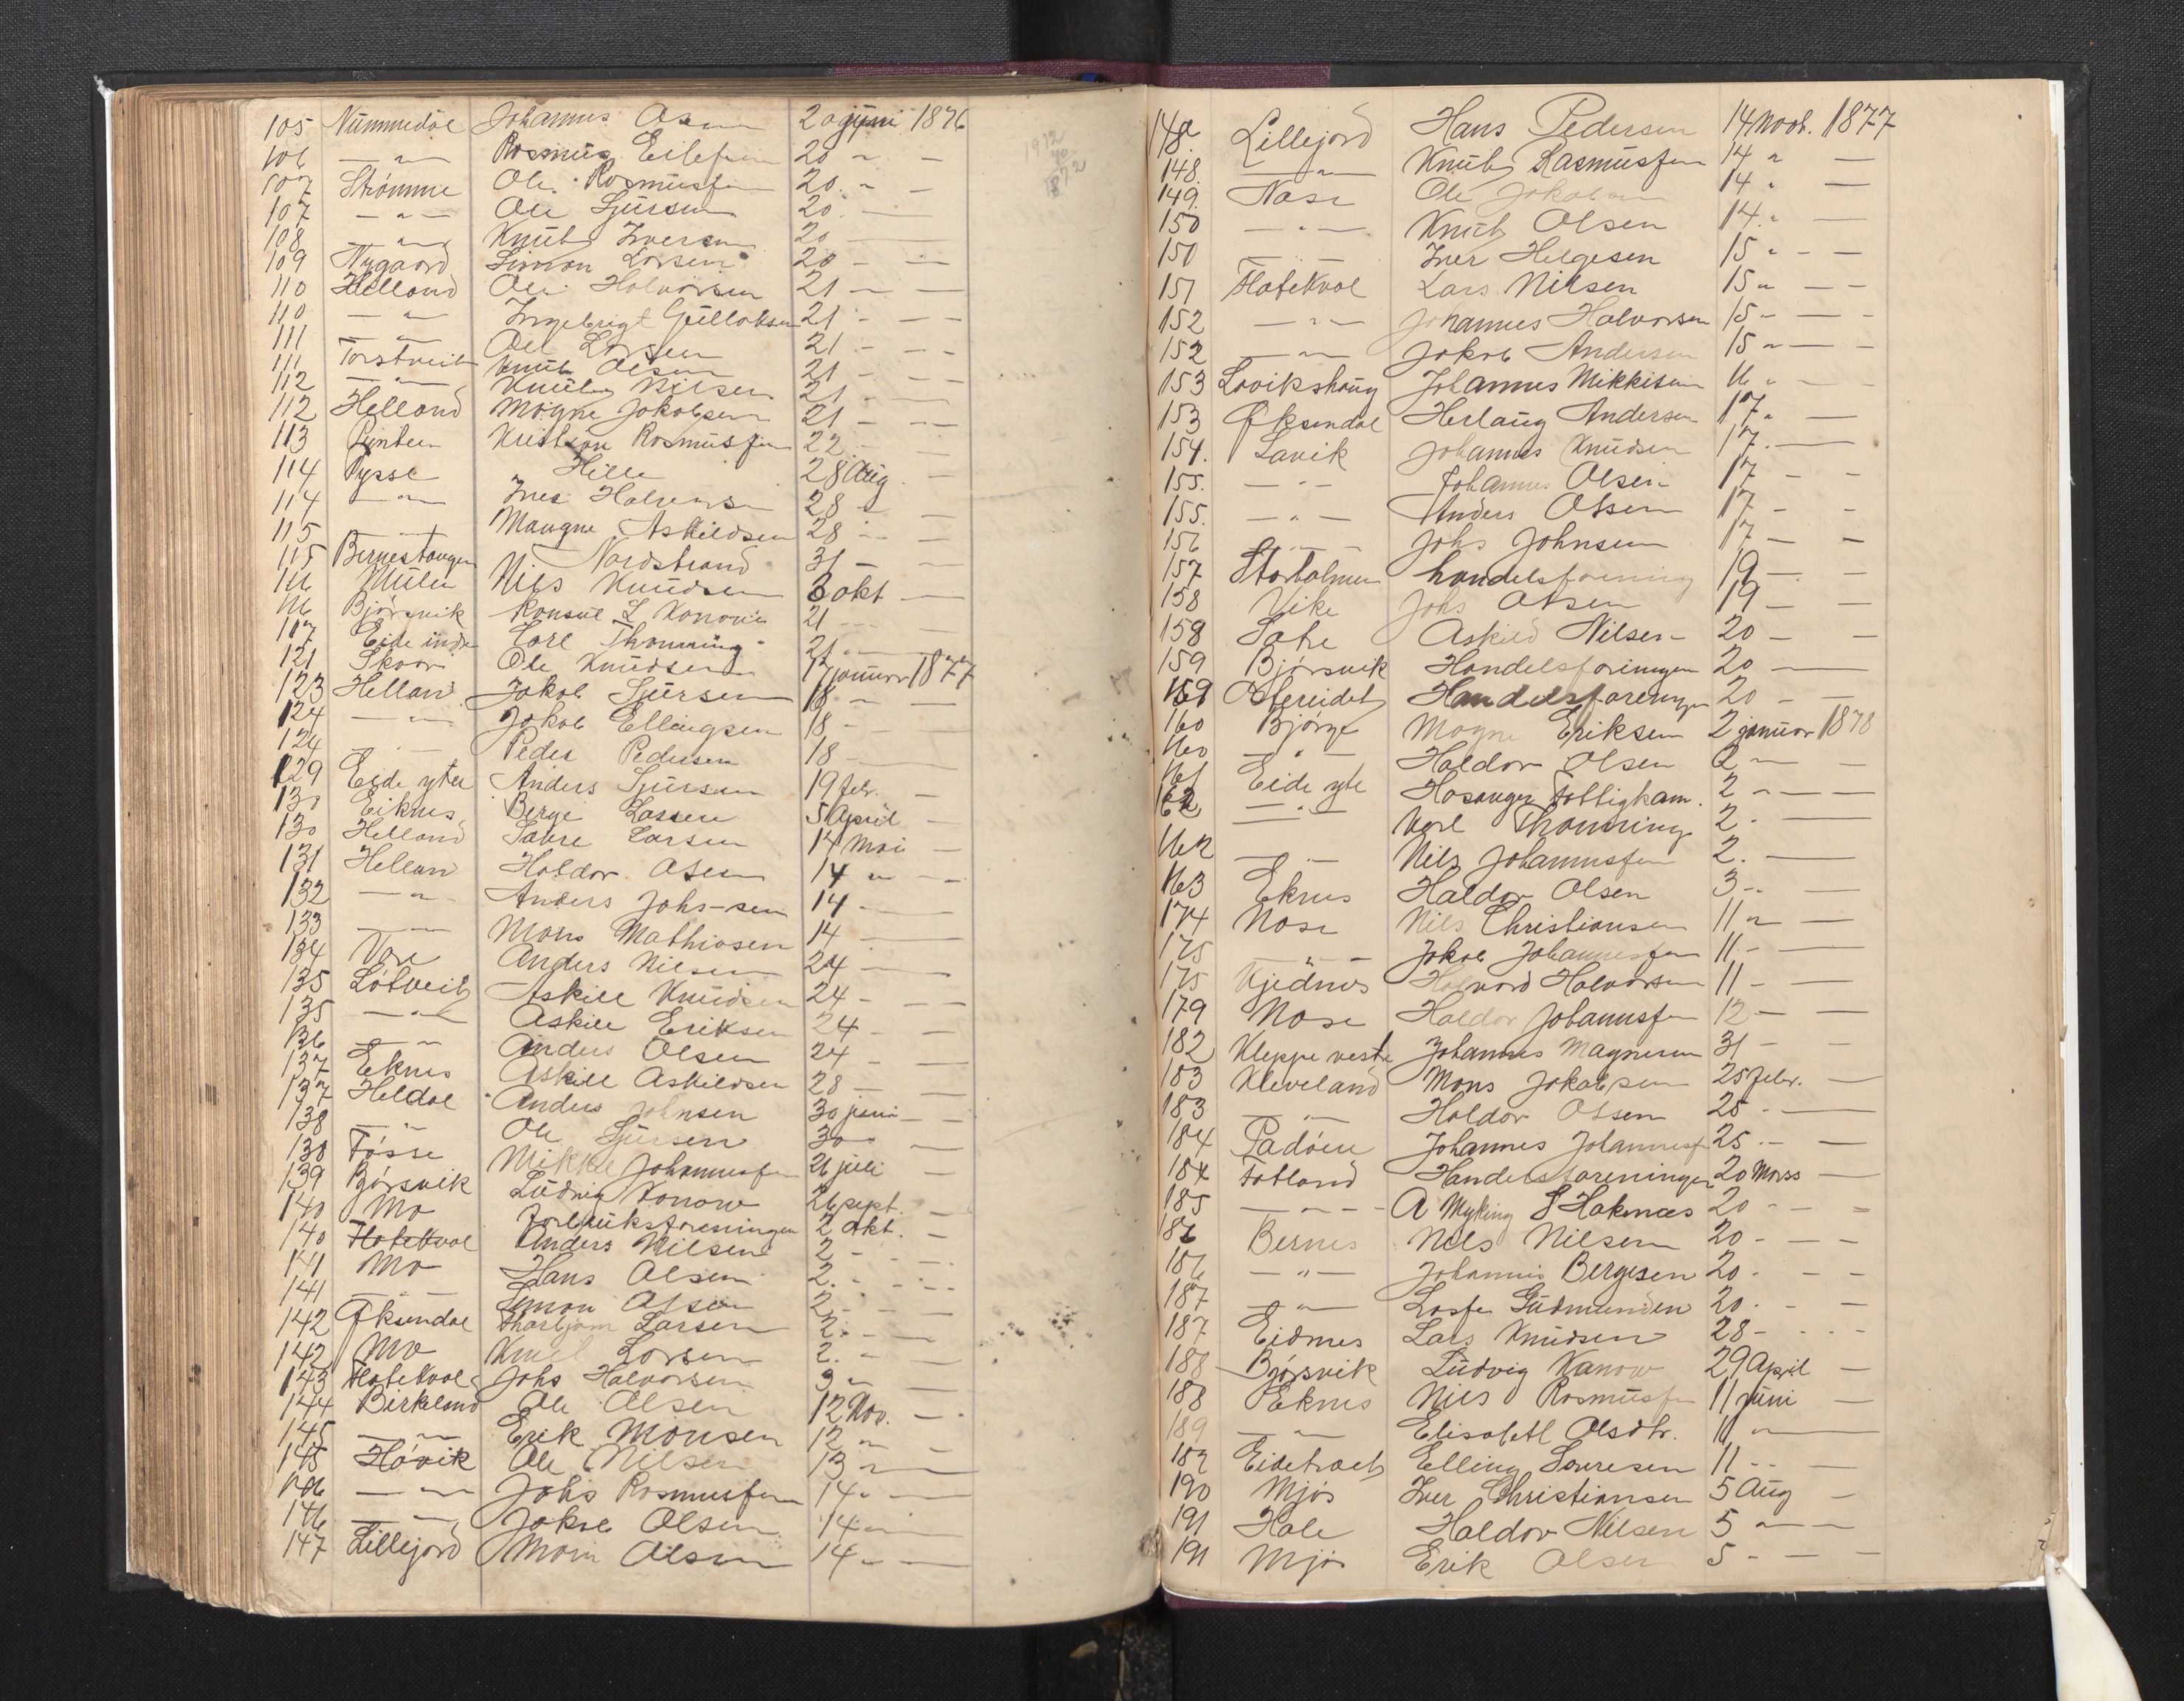 105 Nummedal Johannes Olsen 20 juni 1876
106 — " — Rasmus Eilefsen 20 " —
107 Strömme Ole Rasmussen 20 " —
107 — " — Ole Sjursen 20 —
108 — " — Knut Iversen 20 —
109 Nygaard Simon Larsen 20 - —
110 Helland Ole Halvorsen 21 — —
110 — " — Ingebrigt Gulleksen 21 - — —
111 — " — Ole Larsen 21 - — —
111 Torstveit Knut Olsen 21 - — —
112 — " — Knut Nilsen 21 - — —
112 Helland Mogne Jakobsen 21 - — —
113 Kristian Rasmussen 22 - —
114 Pysse Hille 28 Aug. —
114 — " — Iver Halvorsen 28 - —
115 — " — Maugne Askildsen 28 - —
115 Bernestangen Nordstrand 31 — —
116 Mülen Nils Knudsen 3 okt —
116 Bjørsvik Konsul L Konow 21 — —
117 Eide indre Carl Thonning 21 —
121 Skaar Ole Knudsen 17 januar 1877
123 Hellan Jakob Sjursen 18 — —
124 — " — Jakob Ellingsen 18 - —
124 — " — Peder Pedersen 18 - —
129 Eide ytre Anders Sjursen 19 febr. —
130 Eiknes Berge Lassen 5 April —
130 Helland Sakre Larsen 14 Mai —
131 Hellan Haldor Olsen 14 " —
132 — " — Anders Johs-sen 14 - —
133 — " — Mons Mathiasen 14 - —
134 Vare Anders Nilsen 24 - —
135 Løtveit Askill Knudsen 24 - — —
135 — " — Askill Eriksen 24 - —
136 — " — Anders Olsen 24 - —
137 Eknes Askill Askildsen 28 — —
137 Heldal Anders Johnsen 30 juni —
138 — " — Ole Sjursen 30 —
138 Fosse Mikkel Johannesen 21 juli —
139 Bjørsvik Ludvig Konow 26 sept. —
140 Mo Forbruksforeningen 2 okt. —
140 Flatekval Anders Nilsen 2 - —
141 Mo Hans Olsen 2. - —
141 — " — Simon Olsen 2 - —
142 Øksendal Thorbjørn Larsen 2. - —
142 Mo Knut Larsen 2. - —
143 Flatekval Johs Halvorsen 9 " —
144 Birkeland Ole Olsen 12 Nov. —
145 — " — Erik Monsen 12 " —
145 Høvik Ole Nilsen 13 " —
146 — " — Johs Rasmussen 14 " —
146 — " — Jakob Olsen 14 " —
147 Lillejord Mons Olsen 14 " —
148 Lillejord Hans Pedersen 14 Novb. 1877
148. — " — Knut Rasmusfen 14 " —
149. Nase Ole Jakobsen 14 " —
150 — " — Knut Olsen 14. " —
150 — — Iver Helgesen 15 " - —
151 Flatekval Lars Nilsen 15 " — —
152 — " — Johannes Halvorsen 15 - — —
152 — " — Jakob Andersen 15 " — —
153 Lavikshaug Johannes Mikkelsen 16 " —
153 Øksendal Herlaug Andersen 17 " —
154. Lavik Johannes Knudsen 17. —
155. — " — Johannes Olsen 17 - —
155. — " — Anders Olsen 17 - —
156 — " — Johs Johnsen 17 — —
157 Storholmen handelsforening 19 — —
158 Vike Johs Olsen 19 — —
158 Sætre Askild Nilsen 20 — —
159 Bjørsvik Handelsforeningen 20 —
159 Ostereidet Handelsforeningen 20 - —
160 Bjørge Mogne Eriksen 2 januar 1878
160 — " — Haldor Olsen 2 " —
161 Eide ytre Hosanger Fattigkom. 2 - — —
162 — " — Karl Thonning 2 - —
162 — " — Nils Johannesfen 2. —
163 Eknes Haldor Olsen 3 - —
174 Nose Nils Christiansen 11 " —
175 — " — Jakob Johannesfen 11 - —
175 Kjednes Halvard Halvorsen 11 - —
179 Nose Haldor Johannesfen 12 - —
182 Kleppe vestre Johannes Magnesen 31 - —
183 Kleveland Mons Jakobsen 25 febr. —
183 — " — Haldor Olsen 25 - —
184 Padøen Johannes Johannesf 25 - —
184 Fatland Handelsforeningen 20 Mars —
185 — " — A Myking S Haknæs 20 - — —
186 Bernes Nils Nilsen 20 - — —
186 — " — Johannis Bergesen 20 - — —
187 — " — Lasse Gudmundsen 20 - —
187 Eidnes Lars Knudsen 28 - —
188 Bjørsvik Ludvig Kanow 29 April —
188 Eknes Nils Rasmusfen 11 juni —
189 — " — Elisabet Olsdtr. 11 " —
189 Eidetræet Elling Sauresen 11 - —
190 Mjøs Iver Christiansen 5 Aug —
191 Hole Haldor Nilsen 5 " —
191 Mjøs Erik Olsen 5 - — —